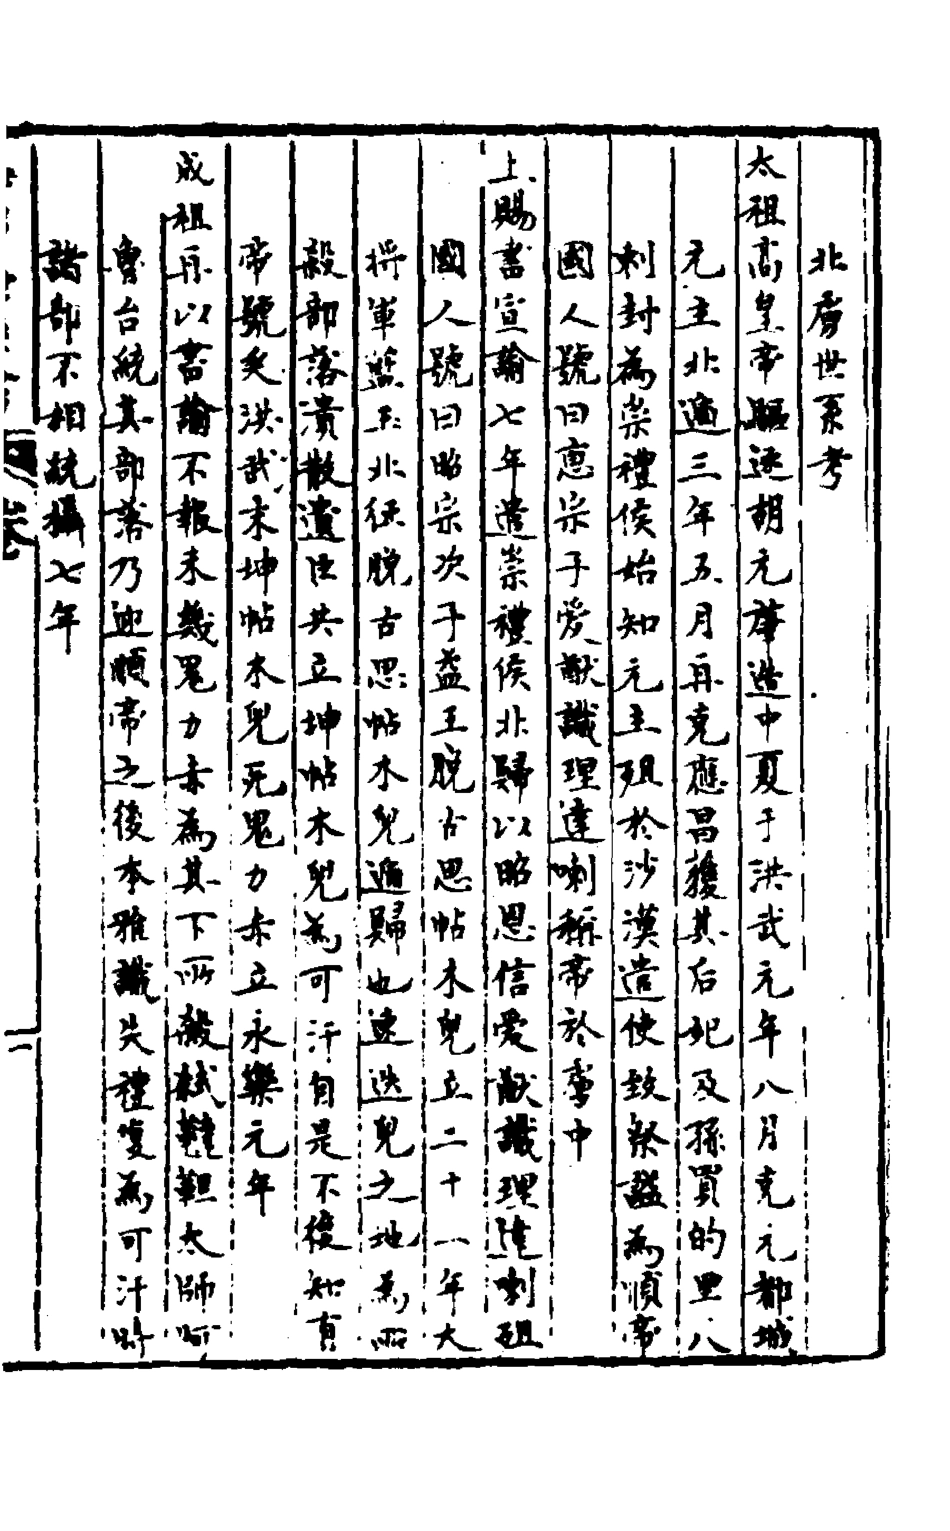 北虜世系考
太祖高皇帝驅逐胡元肇造中夏于洪武元年八月克元都城
元主北遁三年五月再克應昌獲其后妃及孫買的里八
剌封為崇禮侯始知元主殂於沙漠遣使致祭諡為順帝
國人號曰惠宗子愛猷識理達喇稱帝於虜中
上賜書宣諭七年遣崇禮侯北歸以昭恩信愛猷識理達喇殂
國人號曰昭宗次子益王脫古思帖木兒立二十一年大
將軍藍玉北征脫古思帖木兒遁歸也速迭兒之地為所
殺部落潰散遺臣共立坤帖木兒為可汗自是不復知有
帝號矣洪武末坤帖木兒死鬼力赤立永樂元年
成祖再以書諭不報未幾鬼力赤為其下所殺弒韃靼太師阿
魯台統其部落乃迎順帝之後本雅識失禮復為可汗時
諸部不相統攝七年